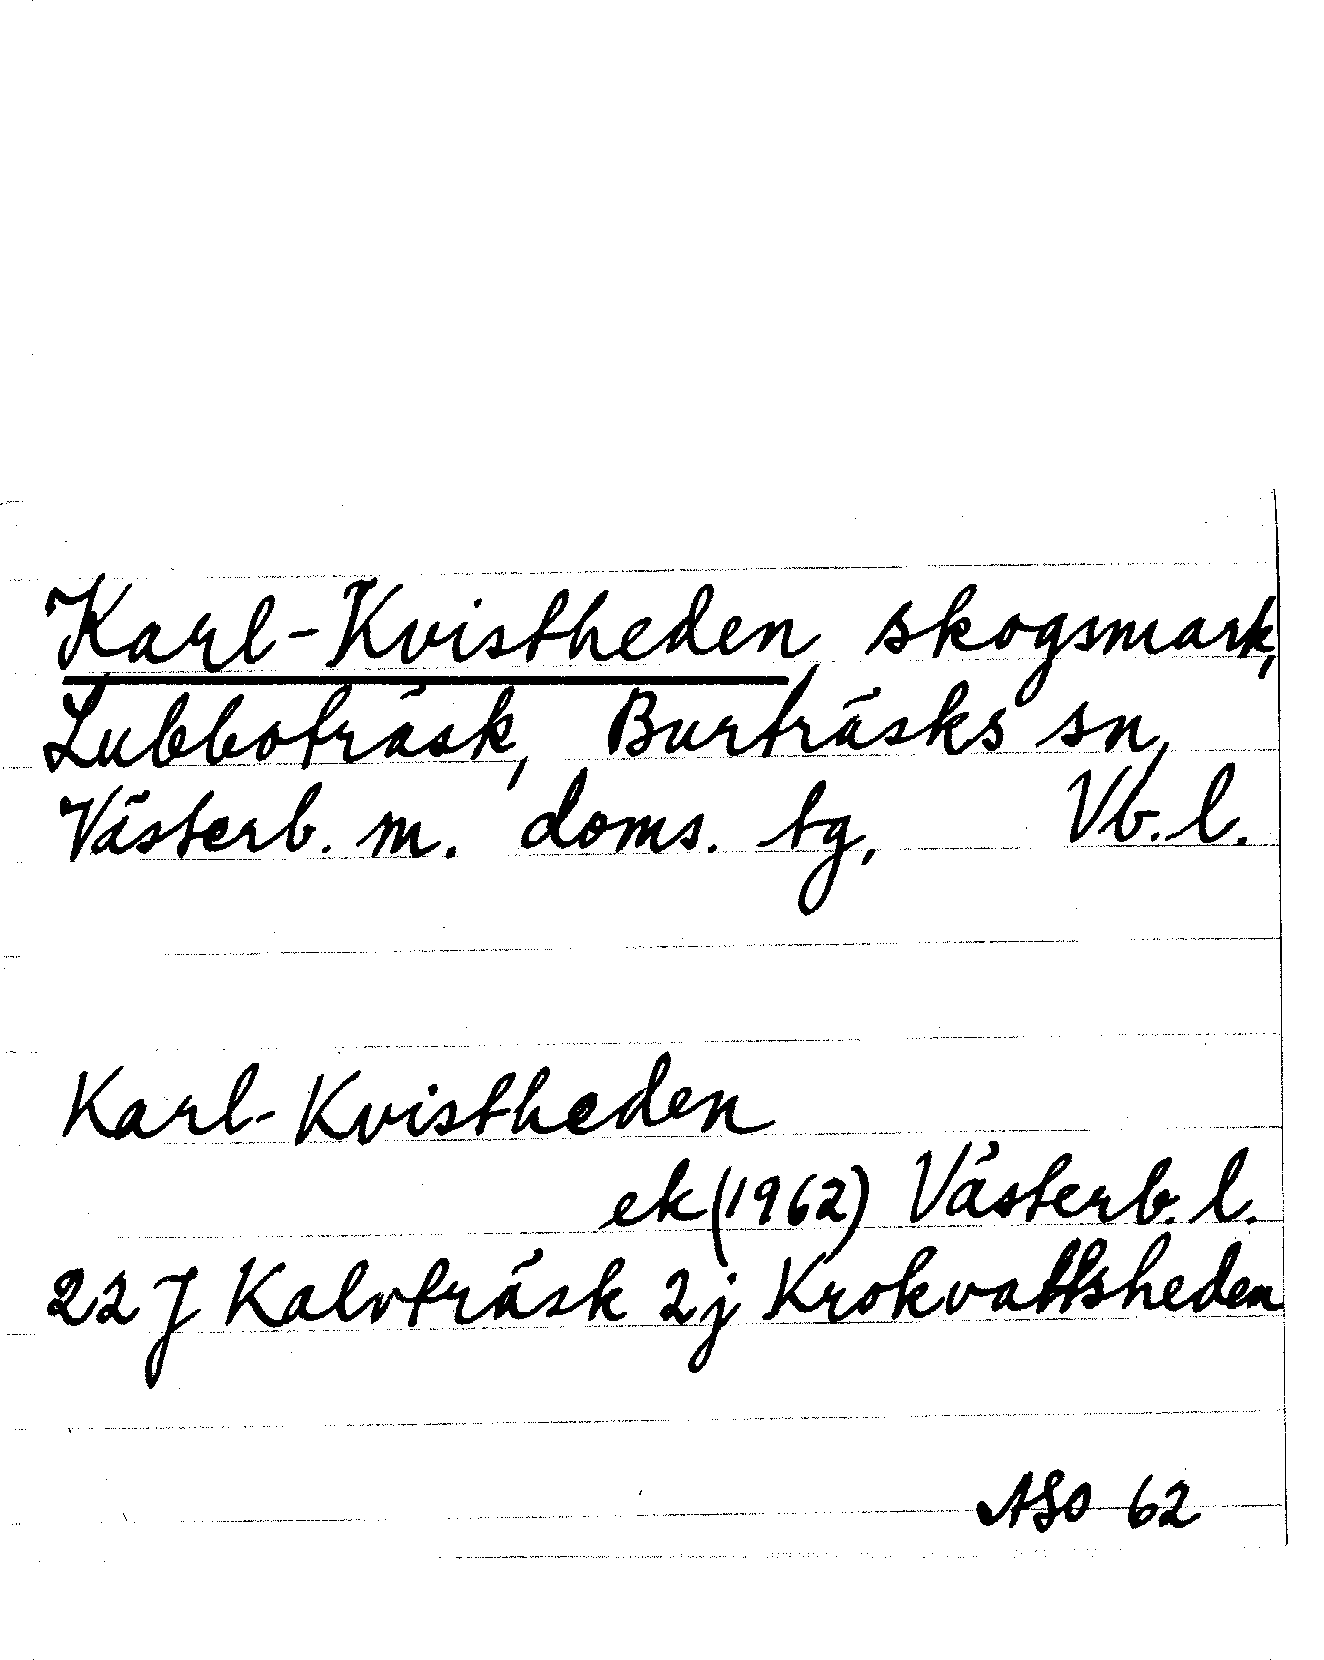 Karl-Kvistheden, skogsmark,
Lubboträsk, Burträsks sn,
Västerb. m. doms. tg, Vb. l.
Karl-Kvistheden
ek (1962) Västerb. l.
22 J Kalvträsk 2j Krokvattsheden
ASO 62